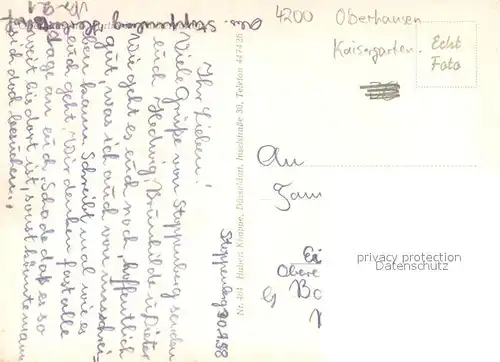 4200 Oberhausen
Kaisergarten.
Echt
Foto
Stoppenberg 20.4.58
Ihr Lieben!
Viele Grüße von Stoppenberg senden
euch Hedwig, Brunhilde u. Dieter
Wie geht es euch noch, hoffentlich
gut, was ich auch von uns schrei-
ben kann. Schreibt mal wie es
euch geht. Wir denken fast alle
Tage an euch. Schade daß es so
weit bis dort ist, sonst könnte man
euch doch besuchen.
Aus Stoppenberg
Nr. 404 Hubert Knappe, Düsseldorf, Inselstraße 30, Telefon 447426
An
Fam
privacy protection
Datenschutz
Obere